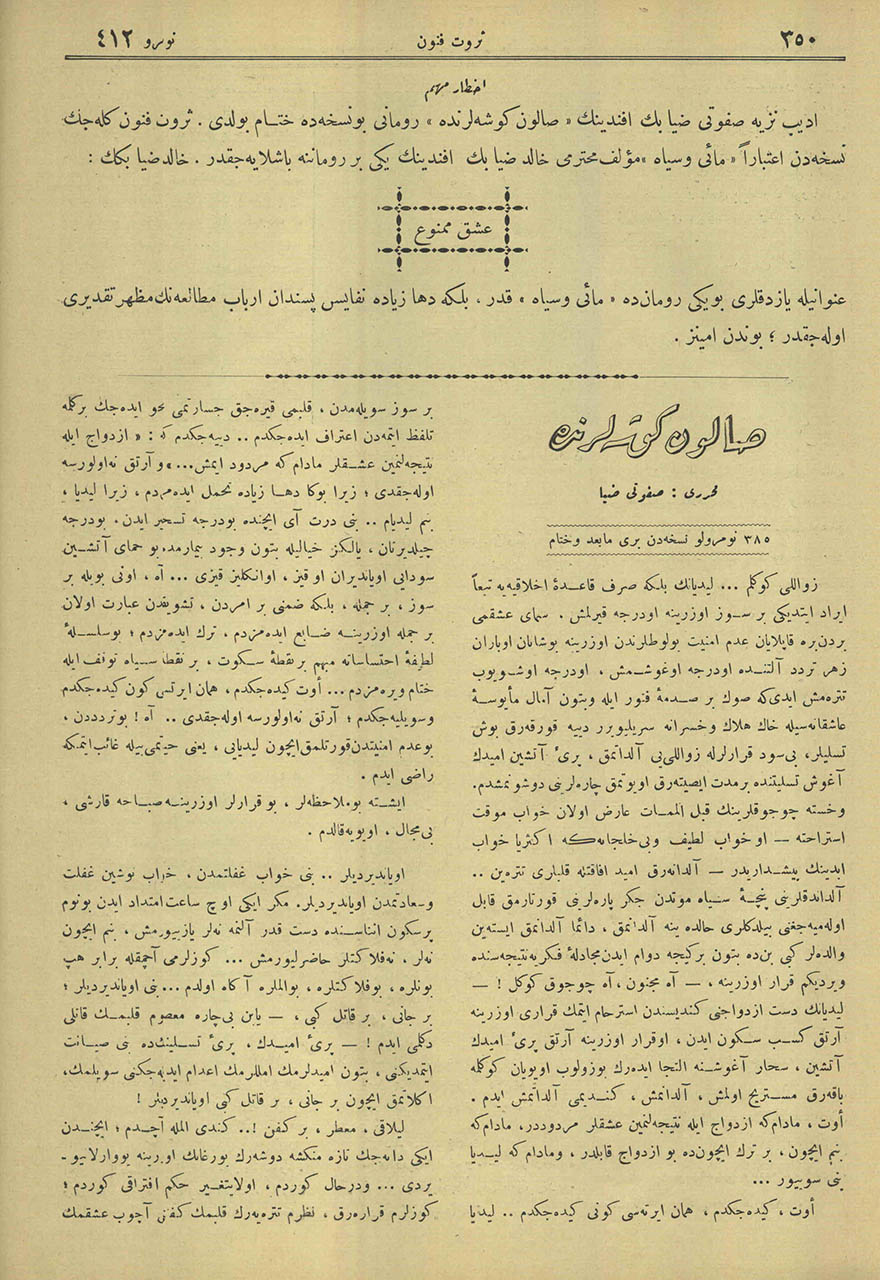 ٣٥٠
ثروت فنون
نومرو ٤١٢
اخطار مهم
اديب نزيه صفوتی ضيا بك افندينك « صالون كوشه‌لرنده » رومانی بونسخه‌ده ختام بولدی . ثروت فنون كله‌جك
نسخه‌دن اعتباراً « مائی وسياه » مؤلف محترمی خالد ضيا بك افندينك يكی بر روماننه باشلايه‌جقدر . خالد ضيا بكك :
عشق ممنوع
عنوانيله يازدقلری بويكی رومان‌ده « مائی وسياه » قدر ، بلكه دها زياده نفايس پسندان ارباب مطالعه‌نك مظهر تقديری
اوله‌جقدر ؛ بوندن امينز .
صالون كوشه‌لرنده
محرری : صفوتی ضيا
٣٨٥ نومرولو نسخه‌دن بری مابعد وختام
زواللی كوكلم ... ليديانك بلكه صرف قاعدۀ اخلاقيه‌يه تبعاً
ايراد ايتديكی بر سوز اوزرينه اودرجه قيرلمش . سمای عشقمی
بردن‌بره قاپلايان عدم امنيت بولوطلرندن اوزرينه بوشانان
زهر تردد آلتنده اودرجه اوغوشمش ، اودرجه اوشويوب
تتره‌مش ايدی‌كه صوك بر صدمۀ فتور ايله وبتون آمال مأيوسۀ
عاشقانه‌سيله خاك هلاك وخسرانه سريليويرر دييه قورقه‌رق بوش
تسليلر، بی‌سود قرارلرله زواللی‌يی آلداتمق ، پریٔ آتشين اميدك
آغوش تسليتنده برمدت ايصيته‌رق اويوتمق چاره‌لرينی دوشونمشدم.
وخسته چوجوقلرينك قبل الممات عارض اولان خواب موقت
استراحته — او خواب لطيف وبی‌خلجانه‌كه اكثريا خواب
ابدينك پيشداريدر — آلدانه‌رق اميد افاقتله قلبلری تتره‌ين ..
آلداندقلرينی پنچۀ سياه موتدن جكر پاره‌لرينی قورتارمق قابل
اوله‌ميه‌جغنی بيلدكلری حالده ينه آلدانمق ، دائما آلدانمق ايسته‌ين
والده‌لر كبی بن‌ده بتون بركيجه دوام ايدن مجادلۀ فكريه نتيجه‌سنده
ويرديكم قرار اوزرينه ، — آه مجنون ، آه چوجوق كوكل ! —
ليديانك دست ازدواجنی كنديسندن استرحام ايتمك قراری اوزرينه
آرتق كسب سكون ايدن ، اوقرار اوزرينه آرتق پریٔ اميدك
آتشين ، سحار آغوشنه التجا ايده‌رك بوزولوب اويويان كوكلمه
باقه‌رق مستريح اولمش ، آلدانمش ، كنديمی آلداتمش ايدم .
أوت ، مادام‌كه ازدواج ايله نتيجه‌لنمين عشقلر مردوددر، مادام‌كه
بنم ايچون ، بر ترك ايچون‌ده بو ازدواج قابلدر ، ومادام كه ليديا
بنی سويور ...
أوت ، كيده‌جكدم ، همان ايرته‌سی كونی كيده‌جكدم .. ليديا
بر سوز سويله‌مدن ، قلبمی قيره‌جق جسارتمی محو ايده‌جك بركله
تلفظ ايتمه‌دن اعتراف ايده‌جكدم .. دييه‌جكدم كه : « ازدواج ايله
نتيجه‌لنمين عشقلر مادام كه مردود ايمش...» و آرتق نه‌اولورسه
اوله‌جقدی ؛ زيرا بوكا دها زياده تحمل ايده‌مزدم ، زيرا ليديا ،
بنم ليديام .. بنی درت آی ايچنده بودرجه تسخير ايدن. بودرجه
چيلديرتان ، يالكز خياليله بتون وجود بيمارمده بو حمای آتشين
سودايی اوياندیران او قيز ، اوانكليز قيزی ... آه ، اونی بويله بر
سوز ، بر جمله ، بلكه ضمنی بر امردن ، تشويقدن عبارت اولان
بر جمله اوزرينه ضايع ايده‌مزدم ، ترك ايده‌مزدم ؛ بوسلسلۀ
لطيفۀ احتساساته مبهم بر نقطۀ سكوت ، بر نقطۀ سياه توقف ايله
ختام ويره‌مزدم ... أوت كيده‌جكدم ، همان ايرتسی كون كيده‌جكدم
وسويليه‌جكدم ؛ آرتق نه‌اولورسه اوله‌جقدی .. آه ! بوترددن ،
بوعدم امنيتدن قورتلمق ايچون ليديايی ، يعنی حيتمی بيله غائب ايتمكه
راضی ايدم .
ايشته بو ملاحظه‌لر ، بو قرارلر اوزرينه صباحه قارشی ،
بی‌مجال ، اويويه قالدم .
اوياندیرديلر .. بنی خواب غفلتمدن ، خراب نوشين غفلت
وسعادتمدن اوياندیرديلر. مكر ايكی اوچ ساعت امتداد ايدن بونوم
پرسكون اثناسنده دست قدر آلنمه نه‌لر يازيبورمش ، بنم ايچون
نه‌لر ، نه‌فلاكتلر حاضرليورمش ... كوزلرمی آچمقله برابر هپ
بونلره ، بوفلاكتلره ، بوالملره آكاه اولدم ... بنی اوياندیرديلر ؛
بر جانی ، بر قاتل كبی ، — يا بن بی‌چاره معصوم قلبمك قاتلی
دكلمی ايدم ! — پریٔ اميدك ، پریٔ تسلينك‌ده بنی صيانت
ايتمديكنی ، بتون اميدلرمك املرمك اعدام ايديه‌جكنی سويلمك،
اكلاتمق ايچون بر جانی ، بر قاتل كبی اوياندیرديلر !
ليلاقی ، معطر ، بر كفن !.. كندی المله آچدم ؛ ايچندن
ايكی دانه‌جك تازه منكشه دوشه‌رك يورغانك اوزرينه يووارلانيو-
يردی ... ودرحال كوردم ، اولايتغير حكم افتراقی كوردم ؛
كوزلرم قراره‌رق ، نظرم تتره‌يه‌رك قلبمك كفنی آچوب عشقمك